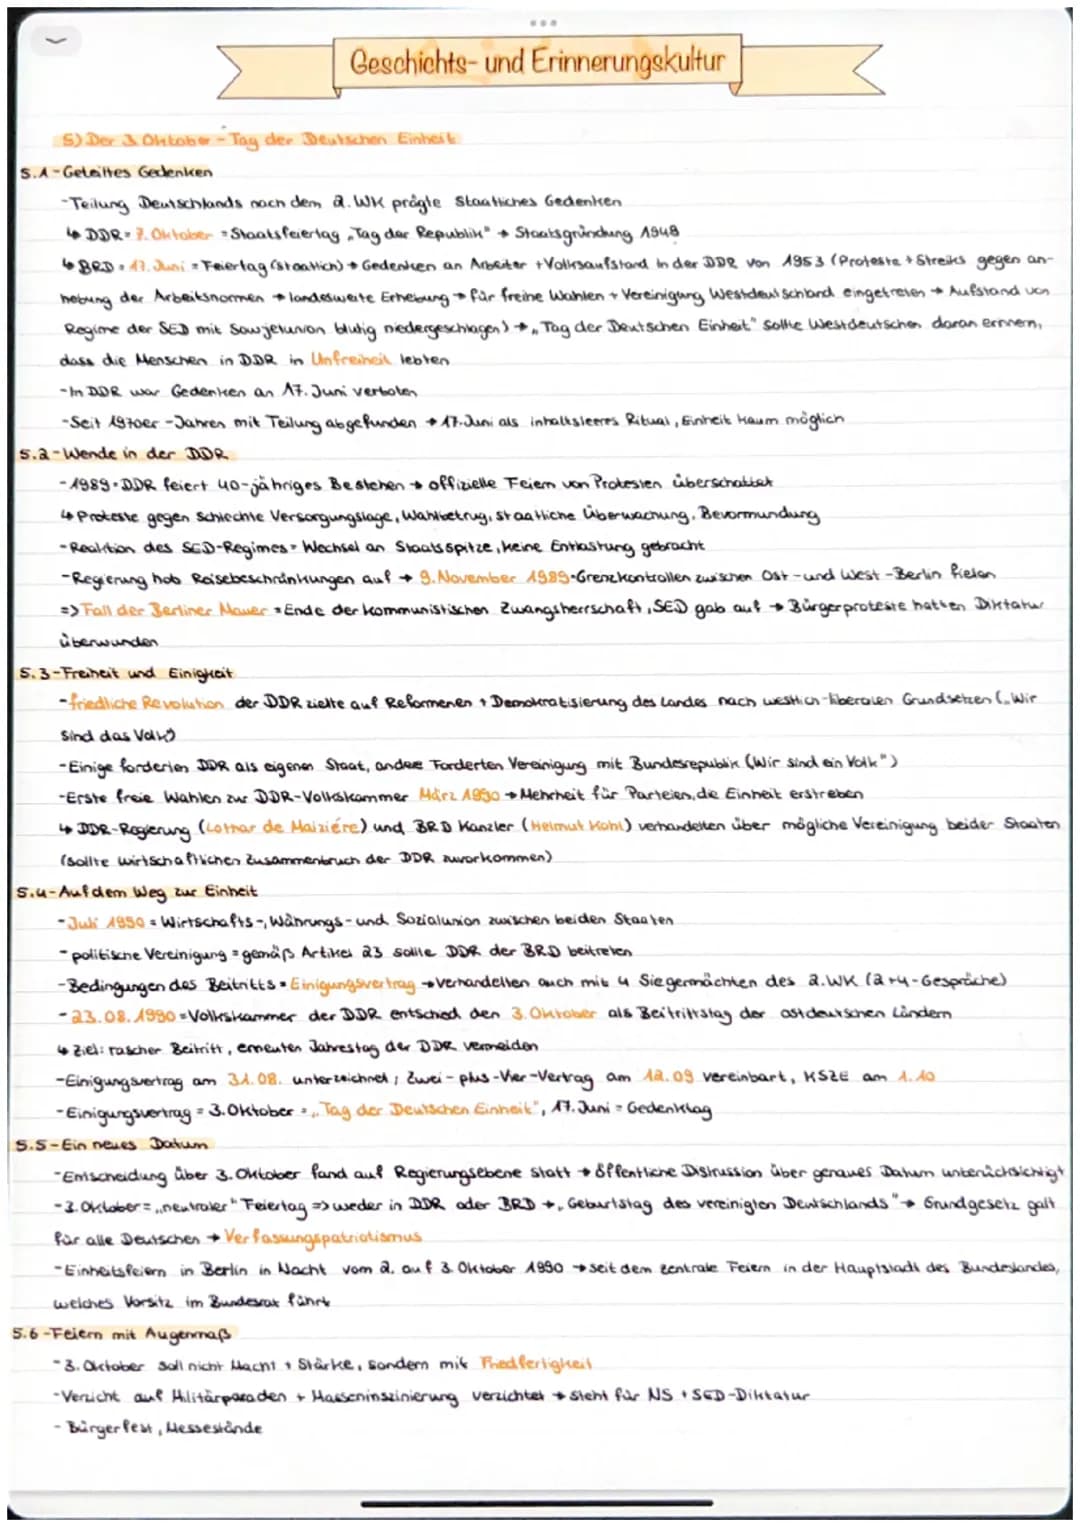 Geschichts- und Erinnerungskultur
5) Der 3. Oktober - Tag der Deutschen Einheit
5.1 - Geteiltes Gedenken
- Teilung Deutschlands nach dem 2. WK prägte Staatliches Gedenken
↳ DDR = 7. Oktober = Staatsfeiertag „Tag der Republik" → Staatsgründung 1948
↳ BRD = 17. Juni = Feiertag (staatlich) → Gedenken an Arbeiter + Volksaufstand in der DDR von 1953 (Proteste + Streiks gegen an-
hebung der Arbeitsnormen → landesweite Erhebung → für freihe Wahlen + Vereinigung Westdeutschland eingetreten → Aufstand von
Regime der SED mit Sowjetunion blutig niedergeschlagen) → „Tag der Deutschen Einheit" sollte Westdeutschen daran erinnern,
dass die Menschen in DDR in Unfreiheit lebten
- In DDR war Gedenken an 17. Juni verboten
- Seit 1970er - Jahren mit Teilung abgefunden → 17. Juni als inhaltsleeres Ritual, Einheit kaum möglich
5.2 - Wende in der DDR
- 1989 = DDR feiert 40-jähriges Bestehen → offizielle Feiern von Protesten überschattet
↳ Proteste gegen schlechte Versorgungslage, Wahlbetrug, staatliche Überwachung, Bevormundung
- Reaktion des SED-Regimes = Wechsel an Staatsspitze, keine Entlastung gebracht
- Regierung hob Reisebeschränkungen auf → 9. November 1989 = Grenzkontrollen zwischen Ost - und West - Berlin fielen
=> Fall der Berliner Mauer = Ende der kommunistischen Zwangsherrschaft, SED gab auf → Bürgerproteste hatten Diktatur
überwunden
5.3 - Freiheit und Einigkeit
- friedliche Revolution der DDR zielte auf Reformenen + Demokratisierung des Landes nach westlich-liberalen Grundsetzen („Wir
sind das Volk")
- Einige forderten DDR als eigenen Staat, andee Forderten Vereinigung mit Bundesrepublik (Wir sind ein Volk")
- Erste freie Wahlen zur DDR-Volkskammer März 1990 → Mehrheit für Parteien, die Einheit erstreben
↳ DDR-Regierung (Lothar de Maiziére) und BRD Kanzler (Helmut Kohl) verhandelten über mögliche Vereinigung beider Staaten
(sollte wirtschaftlichen Zusammenbruch der DDR zuvorkommen)
5.4 - Auf dem Weg zur Einheit
- Juli 1990 = Wirtschafts-, Währungs- und Sozialunion zwischen beiden Staaten
- politische Vereinigung = gemäß Artikel 23 sollte DDR der BRD beitreten
- Bedingungen des Beitritts = Einigungsvertrag → verhandelten auch mit 4 Siegermächten des 2. WK (2+4-Gespräche)
- 23.08.1990 = Volkskammer der DDR entschied den 3. Oktober als Beitrittstag der ostdeutschen Ländern
↳ Ziel: rascher Beitritt, erneuten Jahrestag der DDR vermeiden
- Einigungsvertrag am 31.08. unterzeichnet; Zwei - plus - Vier - Vertrag am 12.09 vereinbart, KSZE am 1.10
- Einigungsvertrag = 3. Oktober = „Tag der Deutschen Einheit", 17. Juni = Gedenktag
5.5 - Ein neues Datum
- Entscheidung über 3. Oktober fand auf Regierungsebene statt → öffentliche Diskussion über genaues Datum unberücksichtigt
- 3. Oktober = „neutraler" Feiertag => weder in DDR oder BRD → „Geburtstag des vereinigten Deutschlands" → Grundgesetz galt
für alle Deutschen → Verfassungspatriotismus
- Einheitsfeiern in Berlin in Nacht vom 2. auf 3. Oktober 1990 → seitdem zentrale Feiern in der Hauptstadt des Bundeslandes,
welches Vorsitz im Bundesrat führt
5.6 - Feiern mit Augenmaß
- 3. Oktober soll nicht Macht + Stärke, sondern mit Friedfertigkeit
- Verzicht auf Militärparaden + Masseninszinierung verzichtet → steht für NS + SED-Diktatur
- Bürgerfest, Messestände